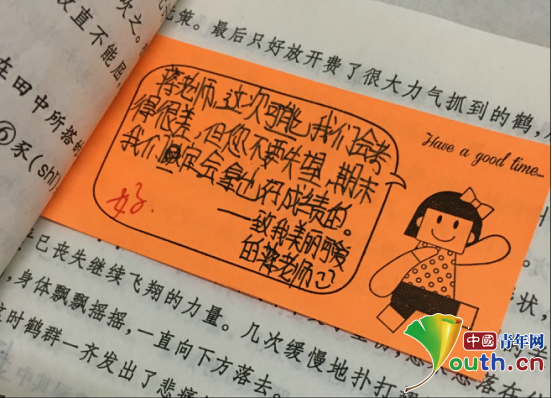 吹之。
直不能屈,
在田中所搭的
⑥豕(shǐ)
无策。最后只好放开费了很大力气抓到的鹤,
蒋老师,这次可能我们会考
得很差,但您不要失望,期末
我们一定会拿出好成绩的。
——致我美丽可爱
的蒋老师
好.
Have a good time...
状,
已丧失继续飞翔的力量。几次缓慢地扑打
身体飘飘摇摇,一直向下方落去。
这时鹤群一齐发出了悲
中國青年网
Youth.cn